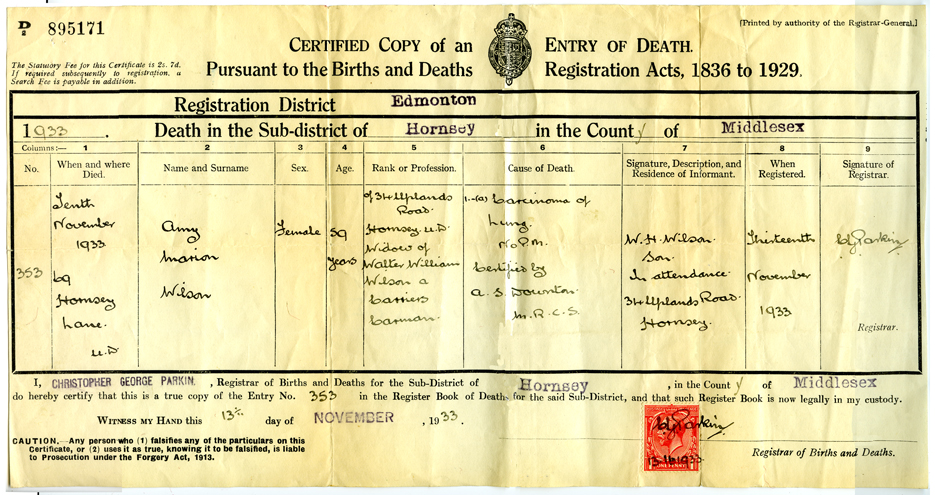 D/2 895171
[Printed by authority of the Registrar-General.]
CERTIFIED COPY OF AN ENTRY OF DEATH.
The Statutory Fee for this Certificate is 2s. 7d.
If required subsequently to registration, a
Search Fee is payable in addition.
PURSUANT TO THE BIRTHS AND DEATHS REGISTRATION ACTS, 1836 TO 1929.
Registration District Edmonton
1933. Death in the Sub-district of Hornsey in the County of Middlesex
Columns:— 1 2 3 4 5 6 7 8 9
No. When and where Died. Name and Surname Sex. Age. Rank or Profession. Cause of Death. Signature, Description, and Residence of Informant. When Registered. Signature of Registrar.
353
Tenth
November
1933
69
Hornsey
Lane.
U.D
Amy
Marion
Wilson
Female
59
years
of 34 Uplands
Road.
Hornsey U.D.
Widow of
Walter William
Wilson a
Carriers
Carman.
1.-(a) Carcinoma of
Lung.
No P.M.
Certified by
A. S. Downton.
M.R.C.S.
W. H. Wilson.
Son.
In attendance.
34 Uplands Road.
Hornsey.
Thirteenth
November
1933
C G Parkin
Registrar.
I, CHRISTOPHER GEORGE PARKIN, Registrar of Births and Deaths for the Sub-District of Hornsey, in the County of Middlesex
do hereby certify that this is a true copy of the Entry No. 353 in the Register Book of Deaths for the said Sub-District, and that such Register Book is now legally in my custody.
WITNESS MY HAND this 13th day of NOVEMBER, 1933.
CAUTION.—Any person who (1) falsifies any of the particulars on this
Certificate, or (2) uses it as true, knowing it to be falsified, is liable
to Prosecution under the Forgery Act, 1913.
C G Parkin
ONE PENNY
Registrar of Births and Deaths.